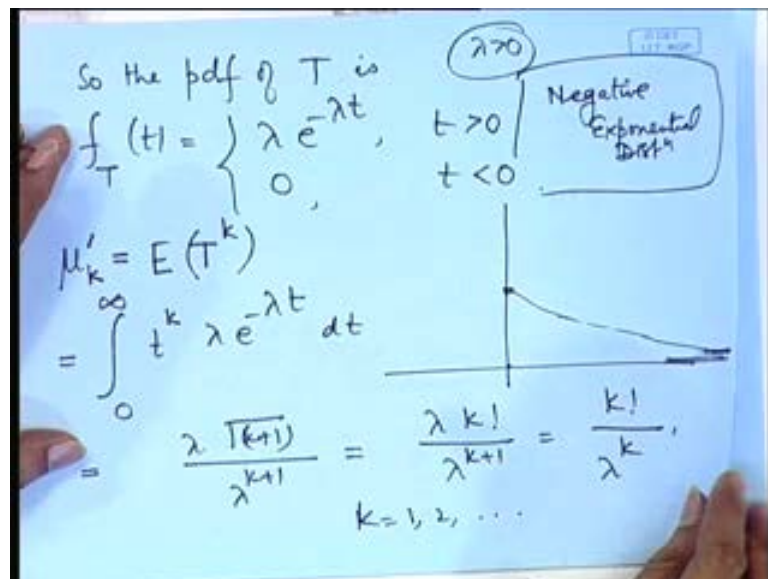 So the pdf of T is
λ>0
f_T (t) = { λ e^{-λt}, t >0
0, t <0
Negative
Exponential
Distⁿ
μ'_k = E (T^k)
= ∫_0^∞ t^k λ e^{-λt} dt
= λ Γ(k+1) / λ^{k+1} = λ k! / λ^{k+1} = k! / λ^k ,
k = 1, 2, ...